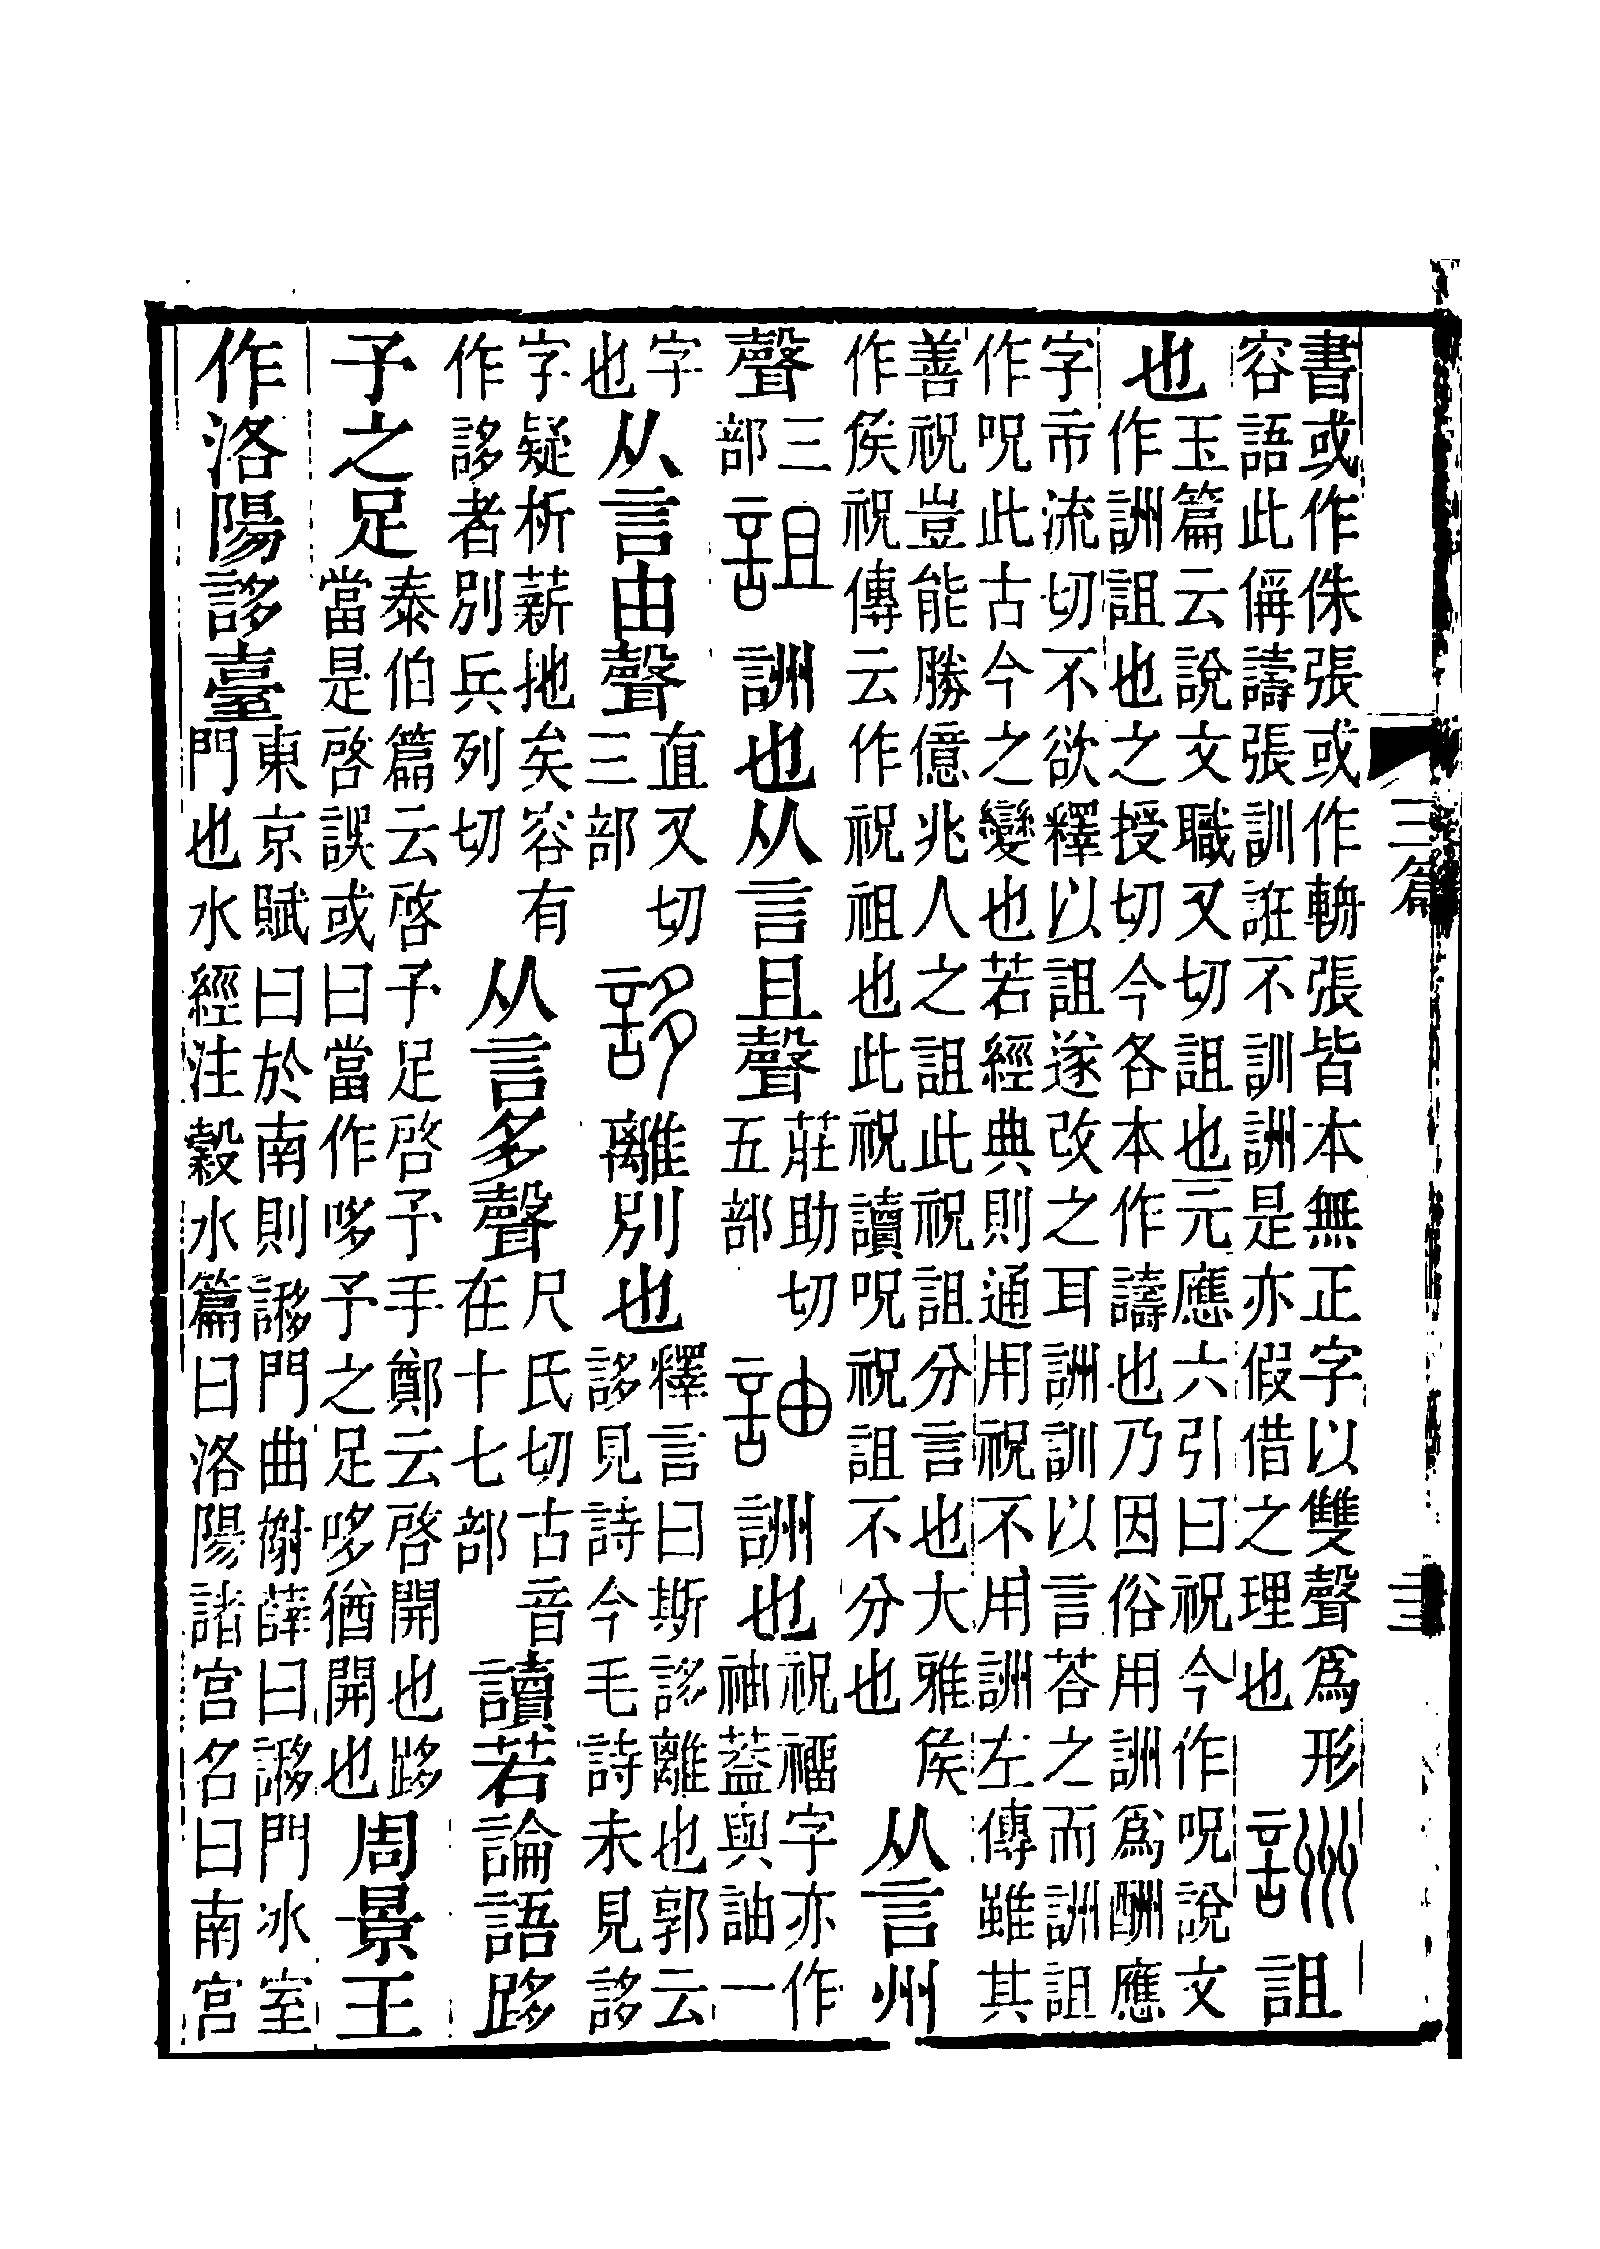 書或作侏張或作輈張皆本無正字以雙聲爲形
容語此偁譸張訓誑不訓詶是亦假借之理也
詶 詛
也
玉篇云說文職又切詛也元應六引曰祝今作呪說文
作詶詛也之授切今各本作譸也乃因俗用詶爲酬應
字市流切不欲釋以詛遂改之耳詶訓以言荅之而詶詛
作呪此古今之變也若經典則通用祝不用詶左傳雖其
善祝豈能勝億兆人之詛此祝詛分言也大雅矦
作矦祝傳云作祝祖也此祝讀呪祝詛不分也
从言州
聲
三
部
詛 詶也从言且聲
莊助切
五部
䛆 詶也
祝䄡字亦作
䄂葢與䛆一
字
也
从言由聲
直又切
三部
誃 離別也
釋言曰斯誃離也郭云
誃見詩今毛詩未見誃
字疑析薪扡矣容有
作誃者別兵列切
从言多聲
尺氏切古音
在十七部
讀若論語跢
予之足
泰伯篇云啓予足啓予手鄭云啓開也跢
當是啓誤或曰當作哆予之足哆猶開也
周景王
作洛陽誃臺
東京賦曰於南則謻門曲榭薛曰謻門冰室
門也水經注穀水篇曰洛陽諸宮名曰南宮
三篇